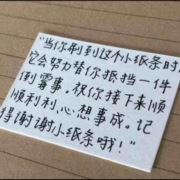 "当你刷到这个小纸条时,
它会努力替你抵挡一件
倒霉事。祝你接下来顺
顺利利,心想事成。记
得谢谢小纸条哦!"